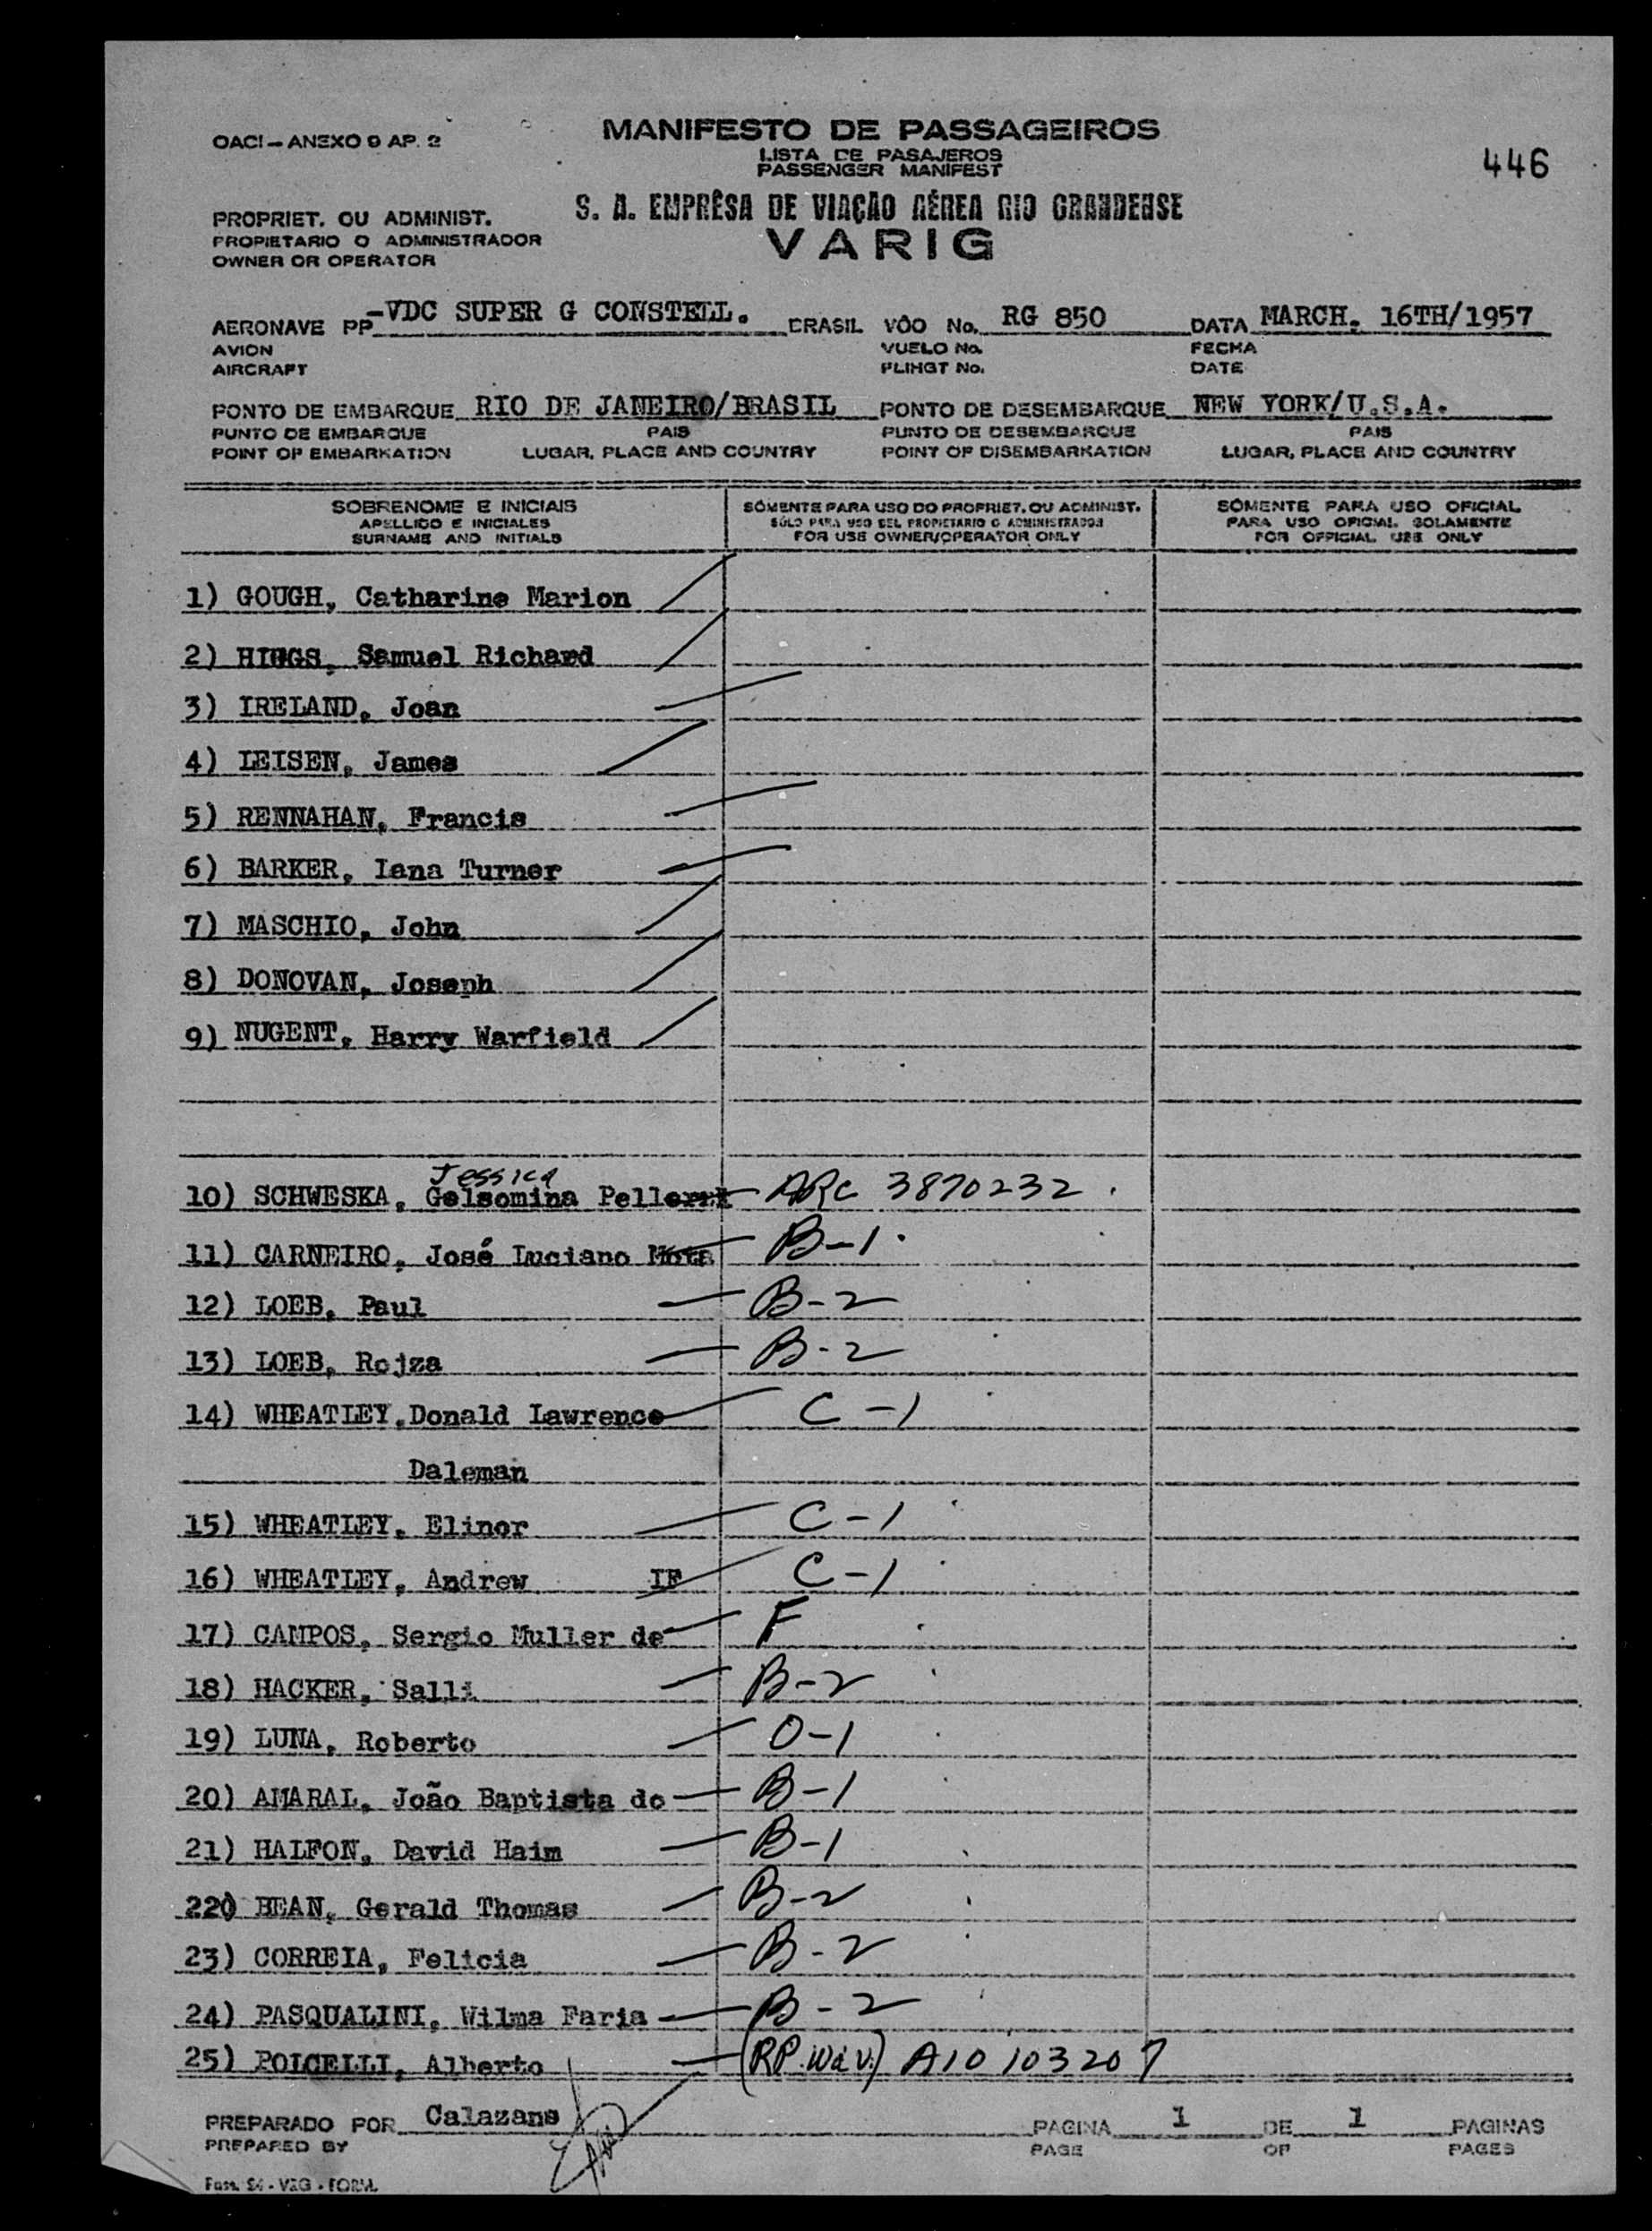 OACI - ANEXO 9 AP. 2
MANIFESTO DE PASSAGEIROS
LISTA DE PASAJEROS
PASSENGER MANIFEST
446
S. A. EMPRÊSA DE VIAÇÃO AÉREA RIO GRANDENSE
VARIG
PROPRIET. OU ADMINIST.
PROPIETARIO O ADMINISTRADOR
OWNER OR OPERATOR
AERONAVE PP-VDC SUPER G CONSTELL. BRASIL VÔO No. RG 850 DATA MARCH. 16TH/1957
AVION VUELO No. FECHA
AIRCRAFT FLIHGT No. DATE
PONTO DE EMBARQUE RIO DE JANEIRO/BRASIL PONTO DE DESEMBARQUE NEW YORK/U.S.A.
PUNTO DE EMBARQUE PAIS PUNTO DE DESEMBARQUE PAIS
POINT OF EMBARKATION LUGAR, PLACE AND COUNTRY POINT OF DISEMBARKATION LUGAR, PLACE AND COUNTRY
SOBRENOME E INICIAIS
APELLIDO E INICIALES
SURNAME AND INITIALS
SÒMENTE PARA USO DO PROPRIET. OU ADMINIST.
SÓLO PARA USO DEL PROPIETARIO O ADMINISTRADOR
FOR USE OWNER/OPERATOR ONLY
SÒMENTE PARA USO OFICIAL
PARA USO OFICIAL SOLAMENTE
FOR OFFICIAL USE ONLY
1) GOUGH, Catharine Marion
2) HIGGS, Samuel Richard
3) IRELAND, Joan
4) LEISEN, James
5) RENNAHAN, Francis
6) BARKER, Lana Turner
7) MASCHIO, John
8) DONOVAN, Joseph
9) NUGENT, Harry Warfield
Jessica
10) SCHWESKA, Gelsomina ARC 3870232.
11) CARNEIRO, José Luciano Mota B-1.
12) LOEB, Paul B-2
13) LOEB, Rojza B-2
14) WHEATLEY, Donald Lawrence C-1
Daleman
15) WHEATLEY, Elinor C-1
16) WHEATLEY, Andrew IF C-1
17) CAMPOS, Sergio Muller de F
18) HACKER, Salli B-2
19) LUNA, Roberto O-1
20) AMARAL, João Baptista do B-1
21) HALFON, David Haim B-1
220 BEAN, Gerald Thomas B-2
23) CORREIA, Felicia B-2
24) PASQUALINI, Wilma Faria B-2
25) POLCELLI, Alberto (RP. Wav.) A10 103207
PREPARADO POR Calazans PAGINA 1 DE 1 PAGINAS
PREPARED BY PAGE OF PAGES